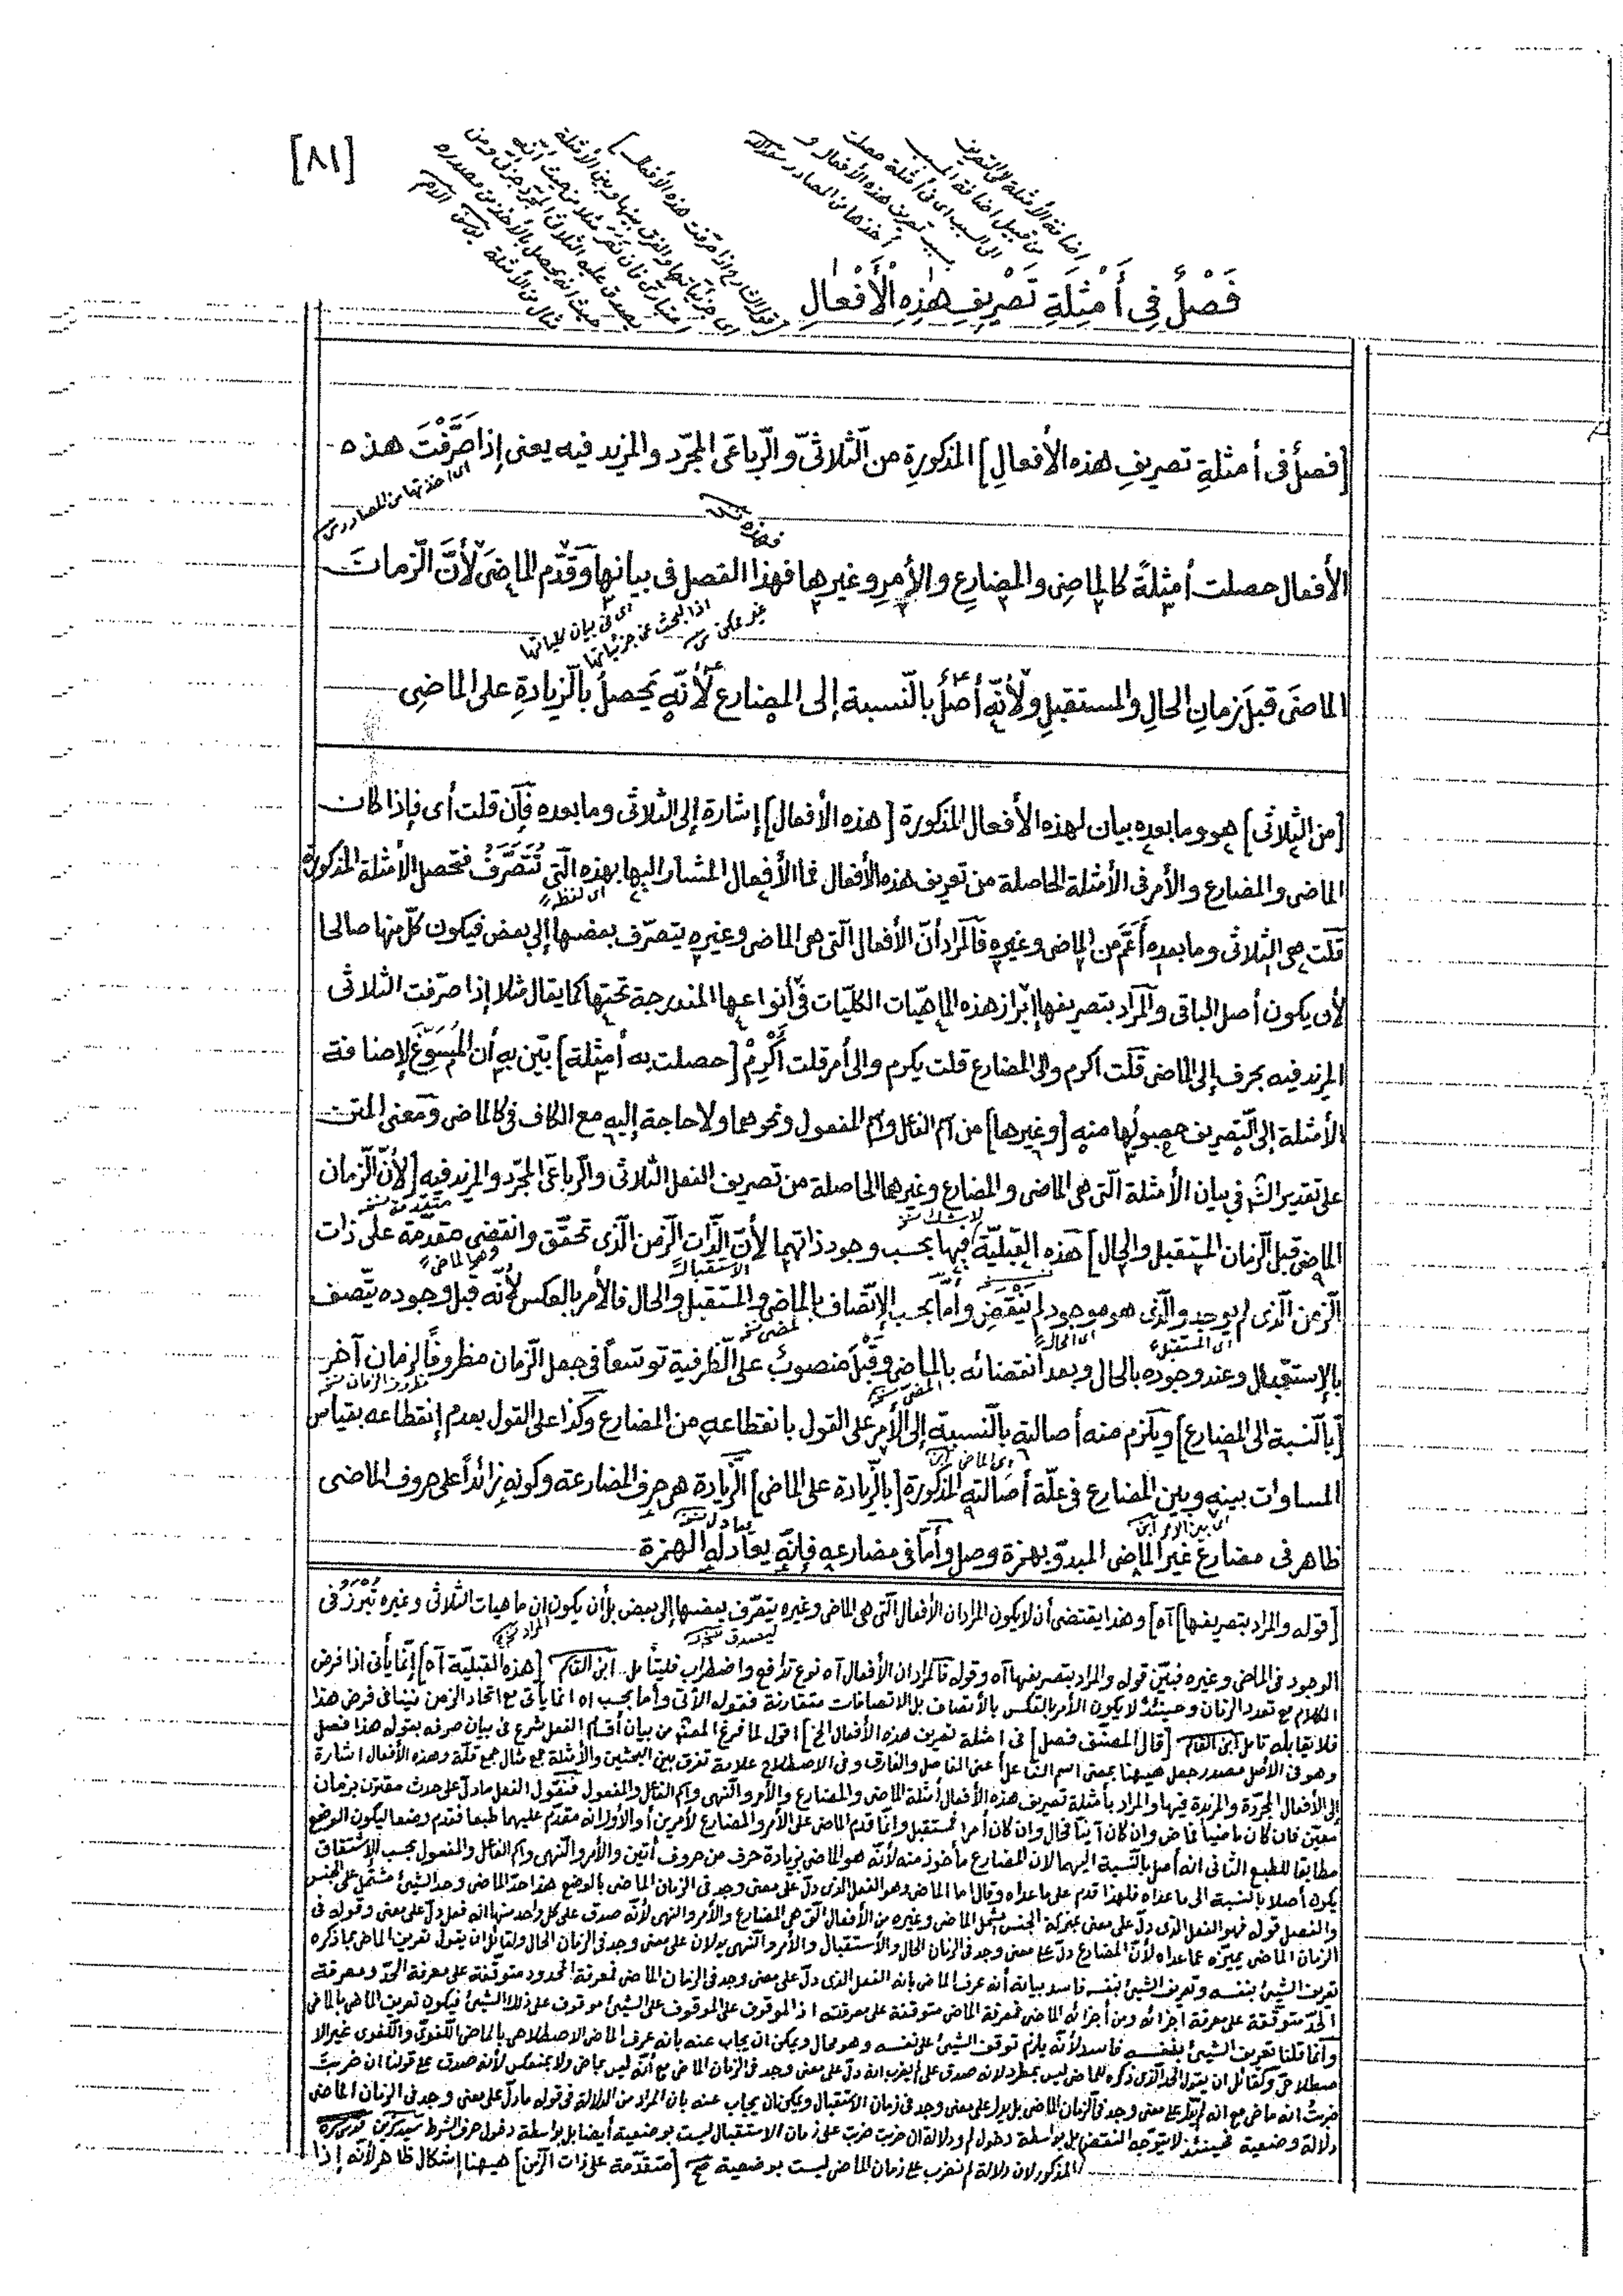 [٨١]
فَصْلٌ فِى أَمْثِلَةِ تَصْرِيفِ هٰذِهِ الْأَفْعٰالِ
إضافة الأمثلة إلى التصريف
من قبيل إضافة المسبب
إلى السبب اى فى أمثلة حصلت
بسبب تصريف هذه الأفعال و
أخذها من المصادر سعدالله
[فصلٌ فى أمثلةِ تصريفِ هذه الأفعالِ] المذكورةِ من الثّلاثىّ والرّباعىّ المجرّد والمزيد فيه يعنى إذا صَرَّفْتَ هذه
اى اخذتها من المصادر
الأفعال حصلت أمثلةً كالماضِى والمضارعِ والأمرِ وغيرها فهذا الفصل فى بيانها وقدّم الماضىَ لأنَّ الزّمانَ
اى فى بيان كلياتها
اذ البحث عن جزئياتها
غير ممكن
الماضىَ قبلَ زمانِ الحالِ والمستقبلِ ولأنّه أصلٌ بالنّسبة إلى المضارع لأنّه يَحصلُ بالزّيادةِ على الماضِى
[من الثلاثى] هو وما بعده بيان لهذه الأفعال المذكورة [هذه الأفعال] إشارة إلى الثلاثى وما بعده فإن قلت أى فإذا كان
الماضى والمضارع والأمر فى الأمثلة الحاصلة من تصريف هذه الأفعال فما الأفعال المشار إليها بهذه الّتى تُتَصَرَّفُ فتحصل الأمثلة المذكورة
قلت هى الثلاثى وما بعده أعمّ من الماضى وغيره فالمراد أنّ الأفعال الّتى هى الماضى وغيره يتصرّف بعضها إلى بعض فيكون كلّ منها صالحا
لأن يكون أصل الباقى والمراد بتصريفها إبراز هذه الماهيّات الكليّات فى أنواعها المندرجة تحتها كما يقال مثلا إذا صرّفت الثلاثى
المزيد فيه بحرف إلى الماضى قلت أكرم وإلى المضارع قلت يكرم وإلى أمر قلت أَكْرِمْ [حصلت به أمثلة] بيّن به أن المُسَوِّغَ لإضافة
الأمثلة إلى التصريف حصولُها منه [وغيرها] من اسم الفاعل واسم المفعول ونحوهما ولا حاجة إليه مع الكاف فى كالماضى ومعنى المتن
على تقدير الشّ فى بيان الأمثلة الّتى هى الماضى والمضارع وغيرهما الحاصلة من تصريف الفعل الثلاثى والرّباعىّ المجرّد والمزيد فيه [لأنّ الزّمان
الماضى قبل الزّمان المستقبل والحال] هذه القبليّة فيها بحسب وجود ذاتهما لأنّ الذّات الزمن الّذى تحقّق وانقضى مقدّمة على ذات
الزّمن الّذى لم يوجد والّذى هو موجود لم يَنقضِ وأمّا بحسب الإتّصاف بالماضى والمستقبل والحال فالأمر بالعكس لأنّه قبل وجوده يتّصف
بالإستقبال وعند وجوده بالحال وبعد انقضائه بالماضى وقَبْلَ منصوبٌ على الظّرفية توسّعاً فى جعل الزّمان مظروفًا لزمان آخر
[بالنّسبة إلى المضارع] ويلزم منه أصالته بالنّسبة إلى الأمر على القول بانقطاعه من المضارع وكذا على القول بعدم إنقطاعه بقياس
المساوات بينه وبين المضارع فى علّة أصالته المذكورة [بالزّيادة على الماضى] الزّيادة هى حرف المضارعة وكونه زائداً على حروف الماضى
ظاهر فى مضارع غير الماضى المبدوّ بهمزة وصل وأمّا فى مضارعه فإنّه يعادله الهمزة
[قوله والمراد بتصريفها] آه] وهذا يقتضى أن لا يكون المراد ان الأفعال الّتى هى الماضى وغيره يتصرّف بعضها إلى بعض بل أن يكون ان ماهيات الثلاثى وغيره تُبْرَزُ فى
الوجود فى الماضى وغيره فبيّن قوله والمراد بتصريفها آه وقوله فالمراد ان الأفعال آه نوع تدافع واضطراب فليتأمل ابن القاسم [هذه القبليّة آه] إنّما يأتى اذا فرض
الكلام مع تعدد الزمان وحينئذ لا يكون الأمر بالعكس بالأتصاف بل الاتصافات متقارنة فقوله الأتى وأما بحسب اه انما يأتى مع اتحاد الزمن فينافى فرض هذا
فلا يقابله تامل ابن القاسم [قال المصنّف فصل] فى امثلة تصريف هذه الأفعال الخ] اقول لما فرغ المصنّف من بيان أقسام الفعل شرع فى بيان صرفه بقوله هذا فصل
وهو فى الأصل مصدر جعل هيهنا بمعنى اسم الفاعل أعنى الفاصل والفارق وفى الاصطلاح علامة تفرق بين البحثين والأمثلة جمع مثال جمع قلّة وهذه الأفعال اشارة
إلى الأفعال المجرّدة والمزيدة فيها والمراد بأمثلة تصريف هذه الأفعال أمثلة الماضى والمضارع والأمر والنّهى واسم الفاعل والمفعول فنقول الفعل ما دلّ على حدث مقترن بزمان
معيّن فان كان ماضيا فماض وان كان آنيا فحال وان كان أمرا فمستقبل وانّما قدم الماضى على الأمر والمضارع لأمرين أ والأول انه مقدّم عليهما طبعا فقدم وضعا ليكون الوضع
مطابقا للطبع الثانى انه أصل بالنّسبة اليهما لان المضارع مأخوذ منه لأنّه هو الماضى بزيادة حرف من حروف أتين والأمر والنّهى واسم الفاعل والمفعول بحسب الإشتقاق
يكون أصلا بالنسبة الى ما عداه فلهذا قدم على ما عداه وقال اما الماضى وهو الفعل الذى دلّ على معنى وجد فى الزمان الماضى بالوضع هذا حدّ الماضى وحد الشيئ مشتمل على الجنس
والفصل قوله فهو الفعل الذى دلّ على معنى بمنزلة الجنس يشمل الماضى وغيره من الأفعال الّتى هى المضارع والأمر والنهى لأنّه صدق على كل واحد منها انه فعل دلّ على معنى وقوله فى
الزمان الماضى يميّزه عما عداه لأنّ المضارع دلّ على معنى وجد فى الزمان الحال والأستقبال والأمر والنّهى يدلان على معنى وجد فى الزمان الحال ولقائل ان يقول تعريف الماضى بما ذكره
تعريف الشيئ بنفسه وتعريف الشيئ بنفسه فاسد بيانه أنه عرف الماضى بانه الفعل الذى دلّ على معنى وجد فى الزمان الماضى فمعرفة المحدود متوقّفة على معرفة الحدّ ومعرفة
الحدّ متوقّفة على معرفة اجزائه ومن أجزائه الماضى فمعرفة الماضى متوقفة على معرفته اذ الموقوف على الموقوف على الشيئ موقوف على ذلك الشيئ فيكون تعريف الماضى بالماضى
وانّما قلنا تعريف الشيئ بنفسه فاسد لأنّه يلزم توقف الشيئ على نفسه وهو محال ويمكن ان يجاب عنه بانه عرف الماضى الاصطلاحى بالماضى اللّغوىّ واللّغوى غير الا
صطلاحىّ ولقائل ان يقول الحد الّذى ذكره للماضى ليس بمطرد لانه صدق على لم يضرب انه دلّ على معنى وجد فى الزمان الماضى مع أنّه ليس بماض ولا بمنعكس لأنه صدق على قولنا ان ضربتَ
ضربتُ انه ماضى مع انه لم يدلّ على معنى وجد فى الزمان الماضى بل يدل على معنى وجد فى زمان الاستقبال ويمكن ان يجاب عنه بان المراد من الدلالة فى قوله ما دلّ على معنى وجد فى الزمان الماضى
دلالة وضعية فحينئذ لا يتوجّه النقض بل بواسطة دخول لم ودلالة ان ضربت ضربت على زمان الاستقبال ليست بوضعية أيضا بل بواسطة دخول حرف الشرط
المذكور لان دلالة لم نضرب على زمان الماضى ليست بوضعية صح [متقدّمة على ذات الزمن] هيهنا إشكال ظاهر لأنّه إذا